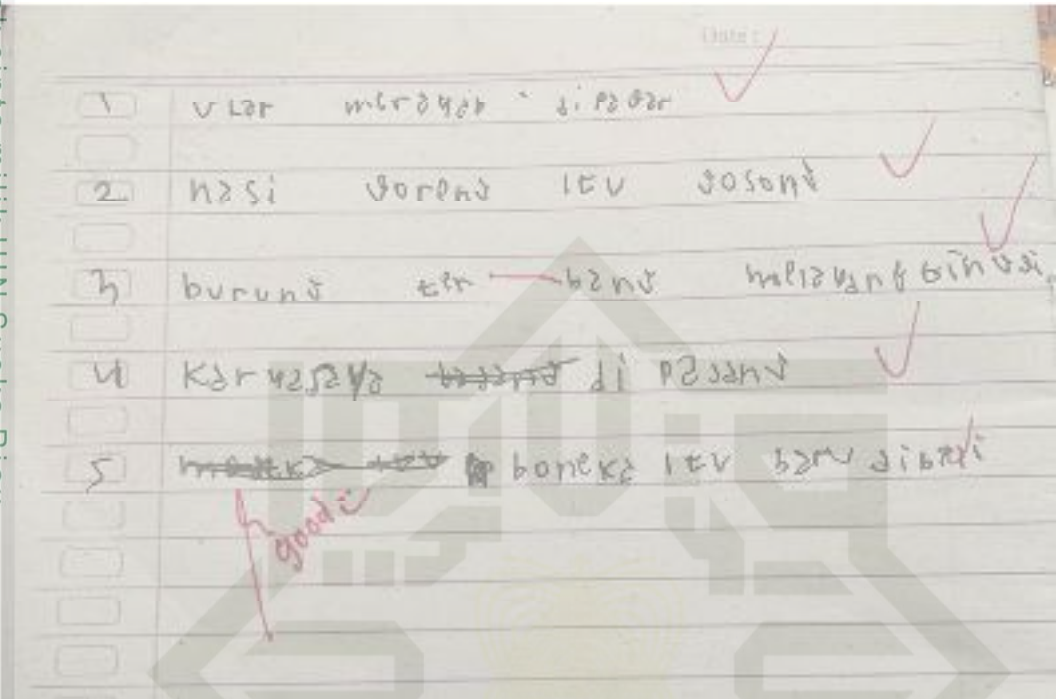 Date:
1 ular merayap di pagar
2 nasi goreng itu gosong
3 burung ter bang melayang tinggi
4 Karyasaya di pajang
5 boneka itu baru dibeli
good